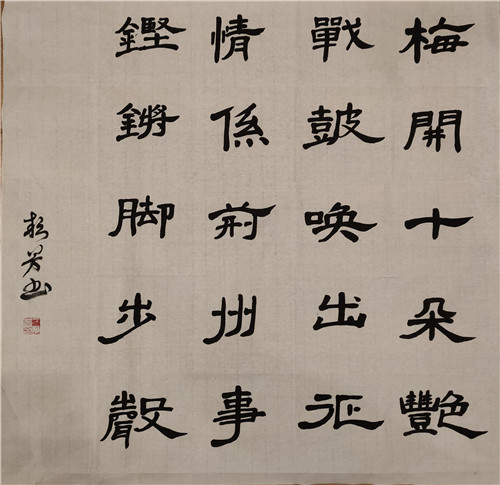 梅開十朵艷
戰皷喚出征
情係荊州事
鏗鏘脚步聲
芳书